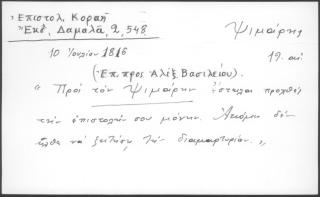 Ἐπιστολ. Κοραῆ
Ἐκδ. Δαμαλᾶ, 2, 548
Ψιμάρης
10 Ἰουλίου 1816
19. αἰ
(Ἐπ. προς Ἀλέξ. Βασιλείου).
"Πρὸς τὸν Ψιμάρην ἔστειλα προχθὲς
τὴν ἐπιστολήν σου μόνην. Ἀκόμη δὲν
ἦλθε νὰ ζητήσῃ τὴν διαμαρτυρίαν.„